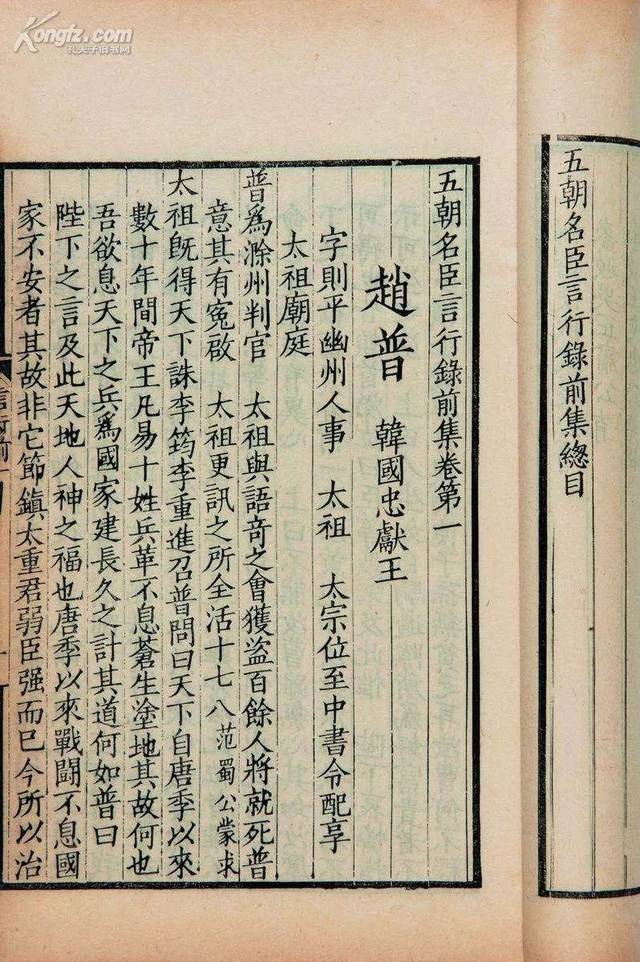 Kongfz.com
孔夫子旧书网
五朝名臣言行錄前集總目
五朝名臣言行錄前集卷第一
趙普 韓國忠獻王
字則平幽州人事 太祖 太宗位至中書令配享
太祖廟庭
普爲滁州判官 太祖與語奇之會獲盜百餘人將就死普
意其有冤啟 太祖更訊之所全活十七八 范蜀公蒙求
太祖旣得天下誅李筠李重進召普問曰天下自唐季以來
數十年間帝王凡易十姓兵革不息蒼生塗地其故何也
吾欲息天下之兵爲國家建長久之計其道何如普曰
陛下之言及此天地人神之福也唐季以來戰鬪不息國
家不安者其故非它節鎭太重君弱臣强而已今所以治